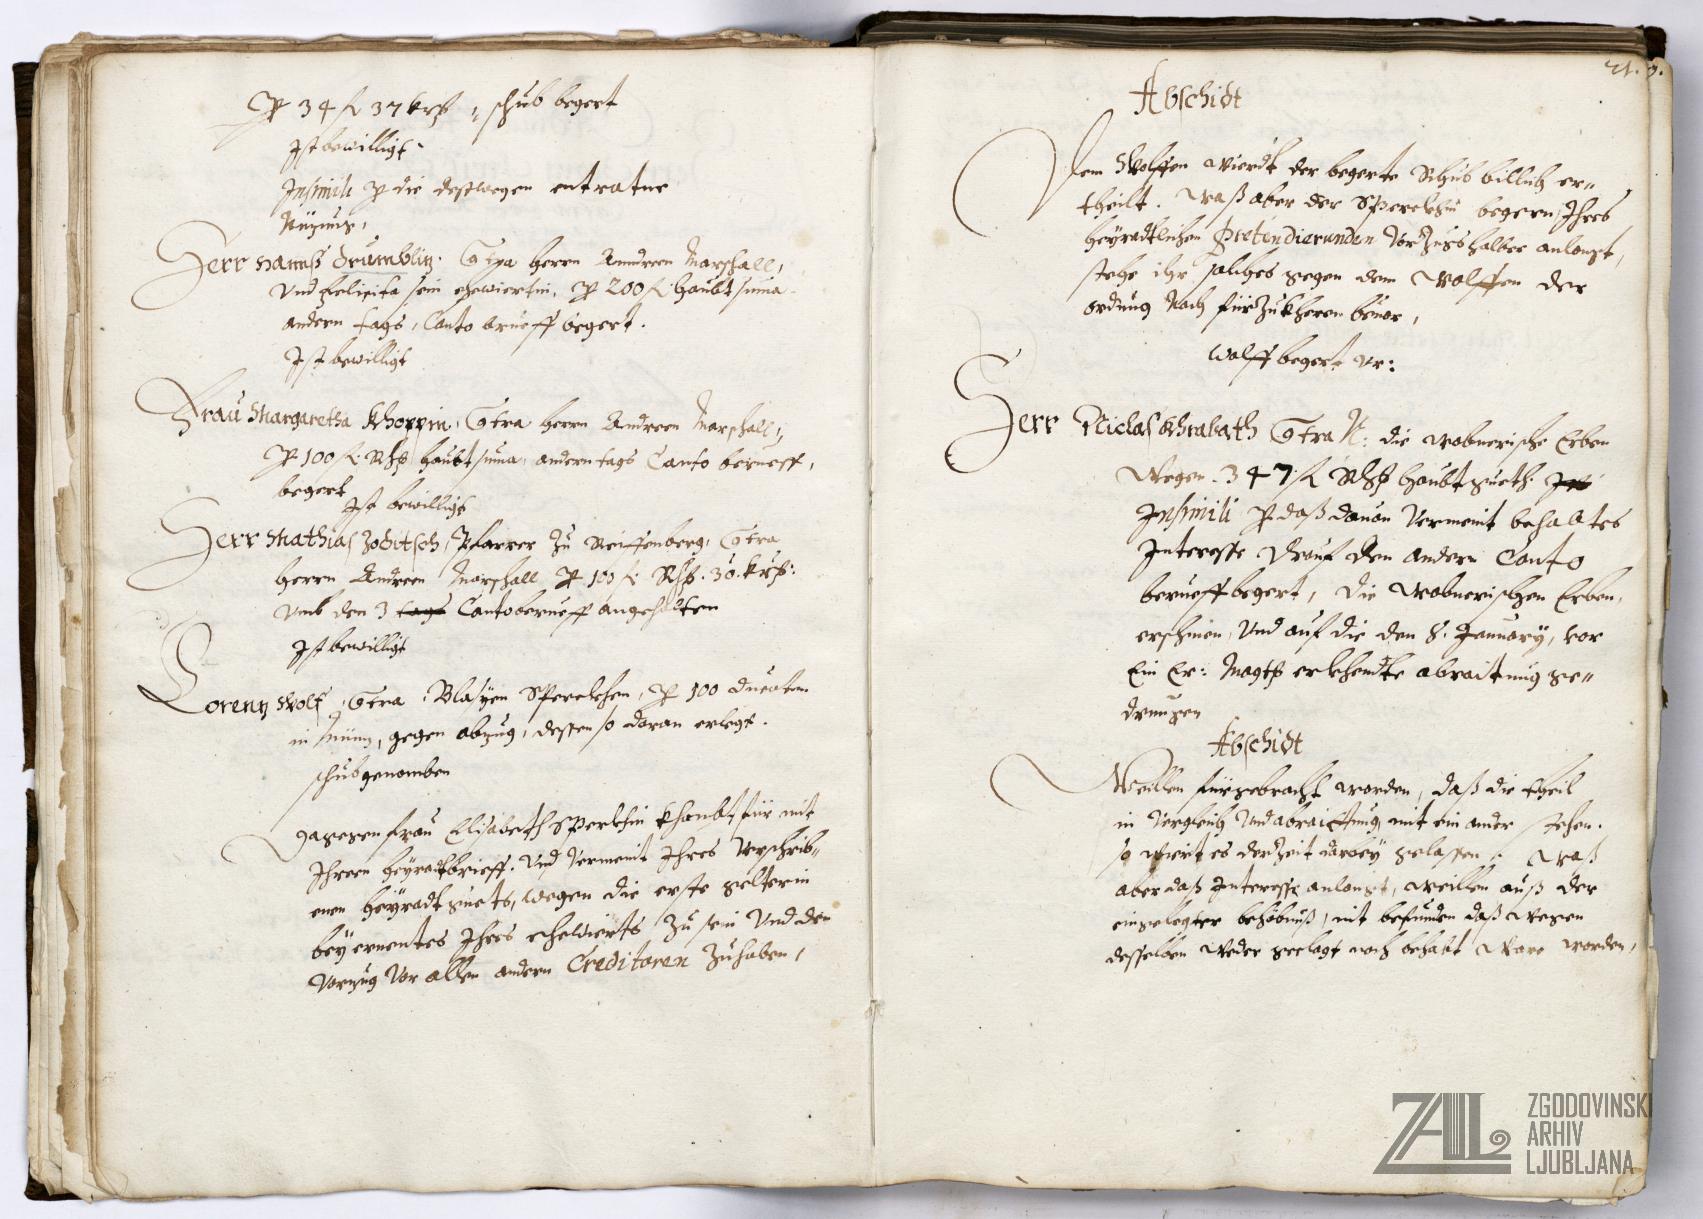 Pr 34 fl 37 krh, schub begert
Ist bewilligt
Insimili pr die desswegen entratne
Nuzung,
Herr Hannss Trumblin. Contra herrn Andreen Marschall,
Vnd Felicita sein ehewiertin, pr 200 fl: haubt suma
andern tags, Canto brueff begert.
Ist bewilligt
Frau Margaretha Khoppin, Contra herrn Andreen Marschall,
Pr 100 fl: Rhss haubt suma, andern tags Canto berueff,
begert
Ist bewilligt
Herr Mathias Zoditsch, Pfarrer zu Reiffenberg, Contra
herrn Andreen Marschall pr 100 fl: Rhss. 30. krh:
Vmb den 3 tags Cantoberueff angehalten
Ist bewilligt
Lorenz Wolf, Contra: Blasyen Sperekhen, pr 100 ducaten
in münz, gegen abzug, dessen so daran erlegt.
schub genomben
Dagegen frau Elisabeth Sperekhin khombt für mit
Ihrem heyradtbrieff. Vnd Vermeint Ihres Verschrib-
enen heyradtguets, wegen die erste gelterin
bey ernentes Ihres ehewierts zu sein Vnd den
Vorzug Vor allen andern Creditoren zuhaben,
21. 9.
Abschidt
Dem Wolffen wierdt der begerte Schub billich er-
theilt. Wass aber der Sperekhin begern, Ihres
heyradtlichen Pretendierunden Vorzugs halber anlangt,
stehe ihr solches gegen dem Wolffen der
ordnung Nach fürzukheren beuor,
Wolff begert Vr:
Herr Niclas Khrabath Contra N: die Wobnerische Erben
Wegen. 347 fl Rhss haubtgueth. Ist
Insimili pr dass dauon Vermeint behabtes
Interesse Drauf den andern Canto
berueff begert, Die Wobnerischen Erben,
erschinen, Vnd auf die den 8. January, vor
Ein Er: Magth erkhendte abraittung ge-
drungen
Abschidt
Weillen fürgebracht worden, dass die theil
in Vergleich Vnd abraittung, mit ein ander stehen.
so Wiert es der Zeit darbey gelassen. Wass
aber dass Interesse anlangt, Weillen auss der
eingelegten behöbnuss, nit befunden dass Wegen
desselben Weder geclagt noch behabt Ware worden,
ZAL ZGODOVINSKI
ARHIV
LJUBLJANA